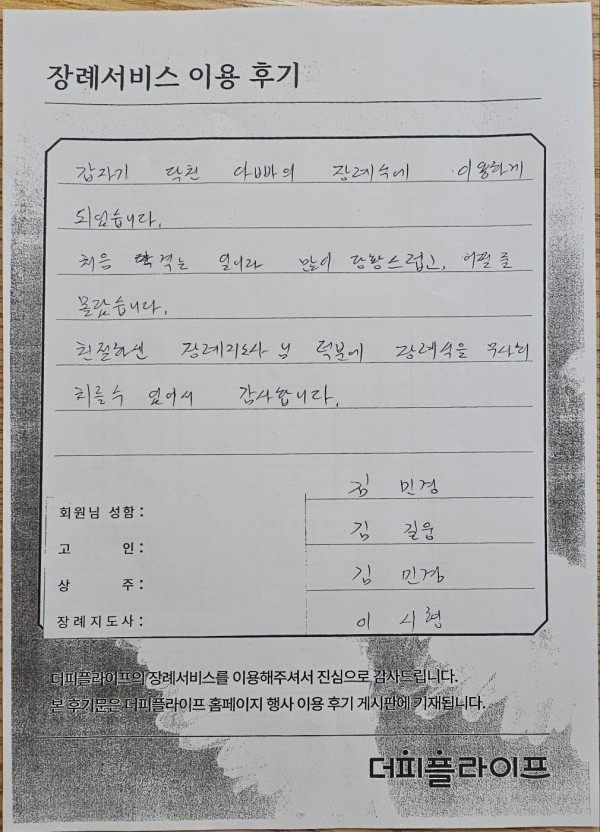 장례서비스 이용 후기
갑자기 닥친 아빠의 장례식에 이용하게
되었습니다.
처음 겪는 일이라 많이 당황스럽고, 어쩔줄
몰랐습니다.
친절하신 장례지도사님 덕분에 장례식을 무사히
치를수 있어서 감사합니다.
회원님 성함 : 김 민경
고 인 : 김 길웅
상 주 : 김 민경
장례지도사 : 이 시형
더피플라이프의 장례서비스를 이용해주셔서 진심으로 감사드립니다.
본 후기문은 더피플라이프 홈페이지 행사 이용 후기 게시판에 기재됩니다.
더피플라이프